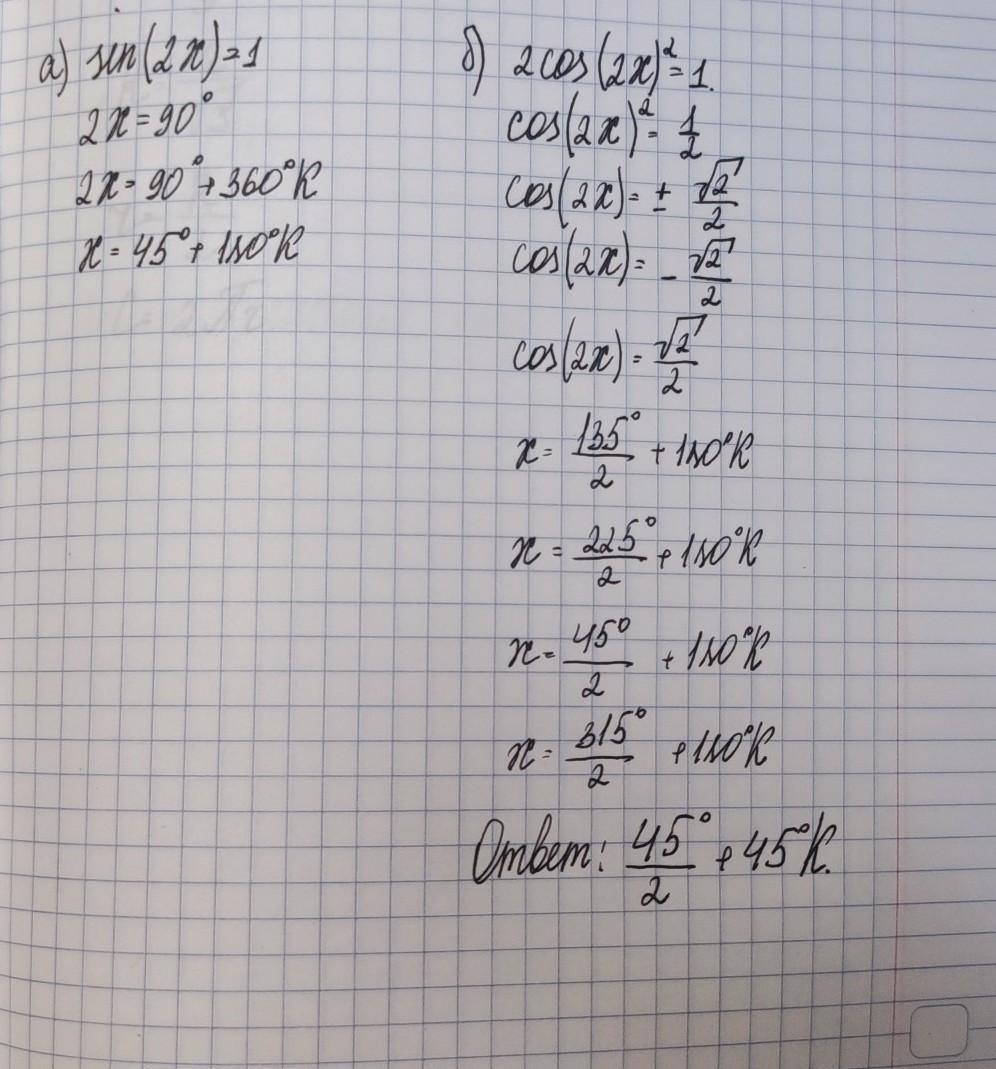 а) sin(2x)=1
2x=90°
2x=90°+360°К
x=45°+180°К
б) 2cos(2x)²=1.
cos(2x)²=1/2
cos(2x)=± √2/2
cos(2x)=-√2/2
cos(2x)=√2/2
x=135°/2+180°К
x=225°/2+180°К
x=45°/2+180°К
x=315°/2+180°К
Ответ: 45°/2+45°К.